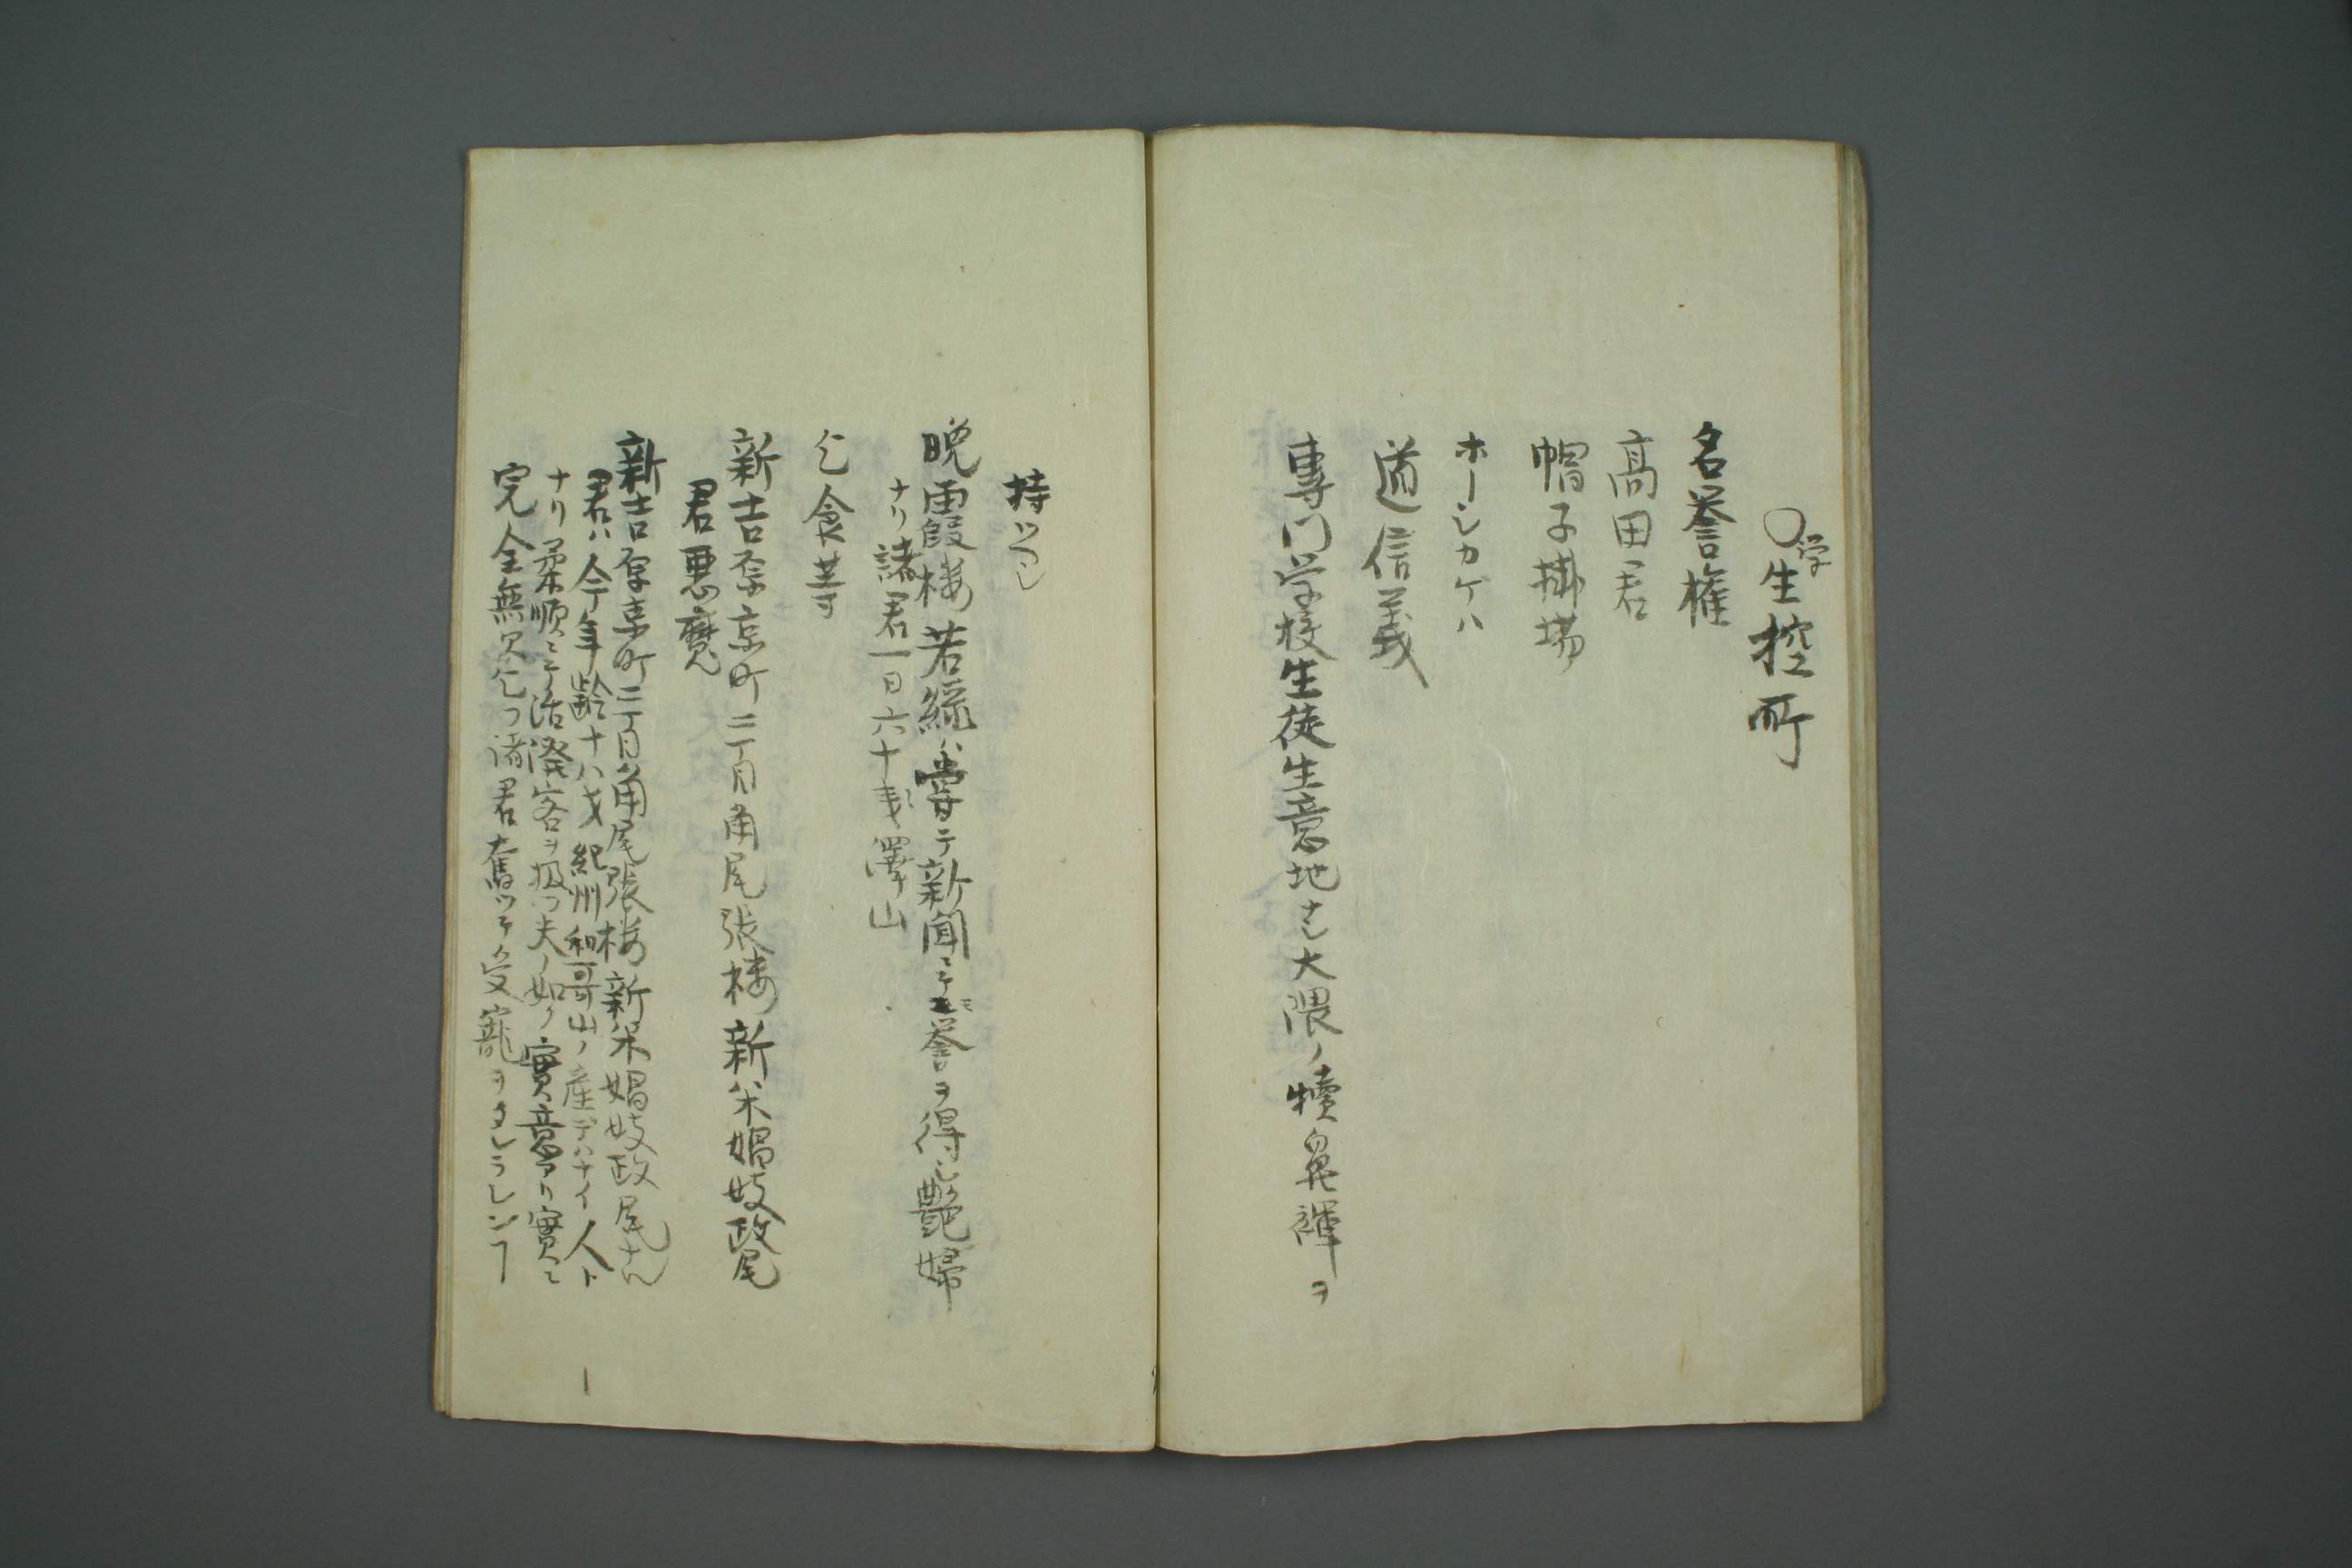 〇学生控所
名誉権
高田君
帽子掛場
ホーシカケハ
道信義
専門学校生徒生意地ナシ大隈ノ犢鼻褌ヲ
持ツヘシ
晩霞楼若緑ハ嘗テ新聞ニテモ誉ヲ得シ艶婦
ナリ諸君一日六十銭澤山
乞食等
新吉原京町三丁目角尾張楼新米娼妓政尾
君悪魔
新吉原京町二丁目角尾張楼新米娼妓政尾ナル
君ハ今年齢十八才紀州和哥山ノ産デハナイ人ト
ナリ柔順ニテ活溌客ヲ扱フ夫ノ如ク實意アリ實ニ
完全無欠乞フ諸君奮ツテ受寵ヲタレラレンヿ